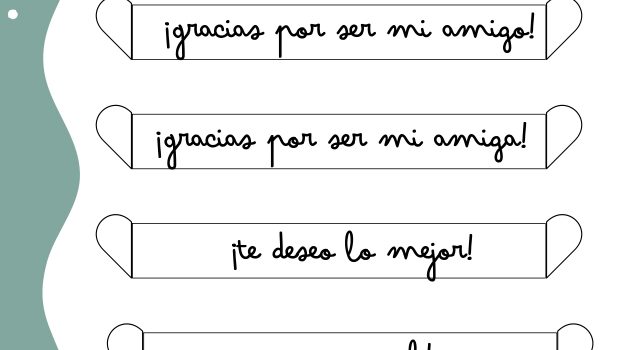 ¡gracias por ser mi amigo!
¡gracias por ser mi amiga!
¡te deseo lo mejor!